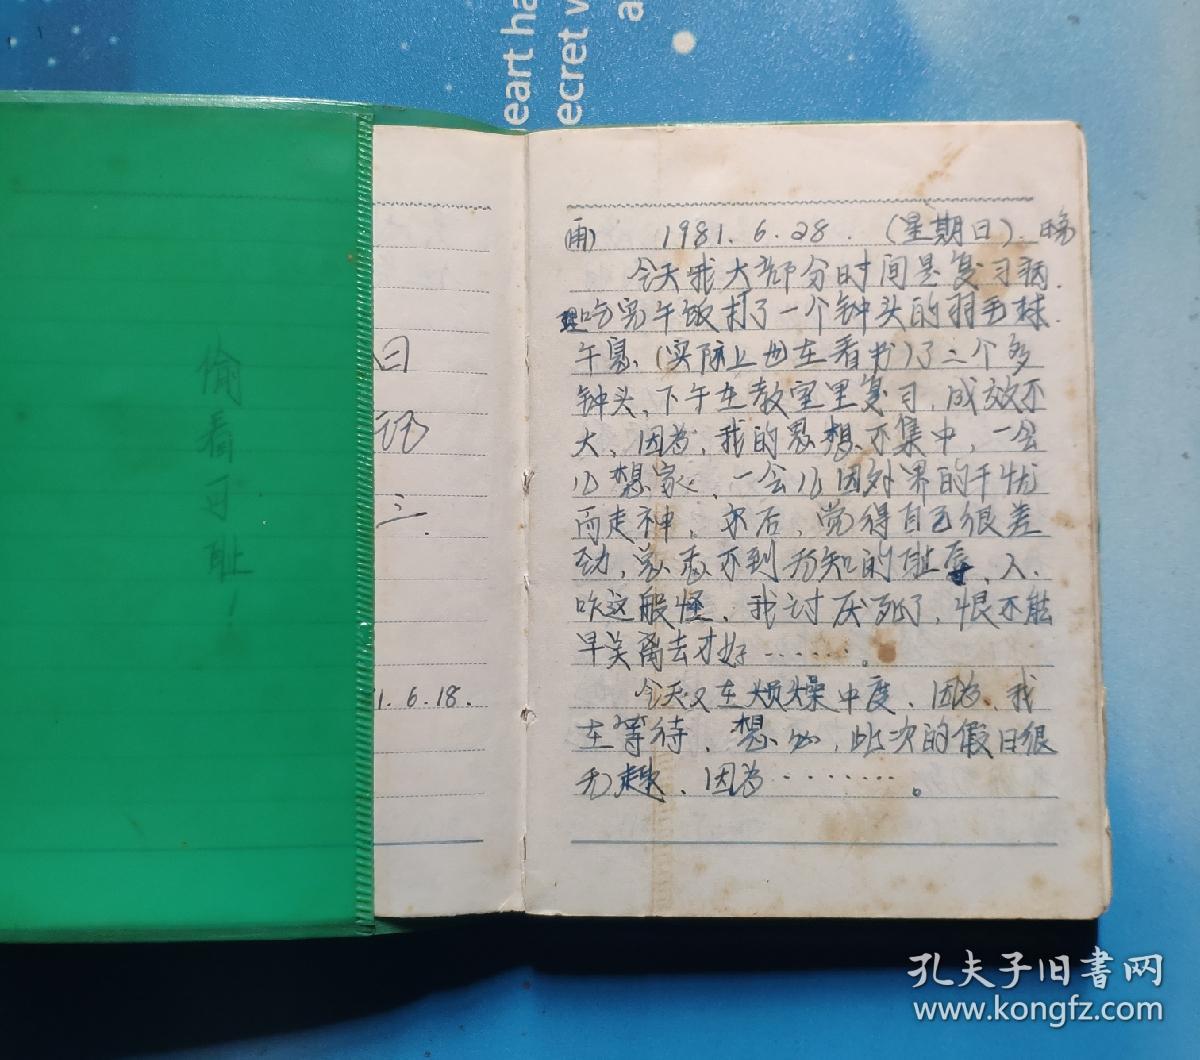 eart ha
ecret v
a
偷看可耻！
日
记
三.
1.6.18.
雨) 1981.6.28.(星期日).晚
今天我大部分时间是复习功课.
吃完午饭打了一个钟头的羽毛球.
午息(实际上也在看书)了二个多
钟头、下午在教室里复习,成效不
大,因为,我的思想不集中,一会
儿想家、一会儿因外界的干忧
而走神,尔后,觉得自己很差
劲,意志不到无知的耻辱、人.
咋这般怪、我讨厌死了,恨不能
早关离去才好······。
今天又在烦燥中度、因为,我
在等待、想必,此次的假日很
无趣、因为·······。
孔夫子旧書网
www.kongfz.com